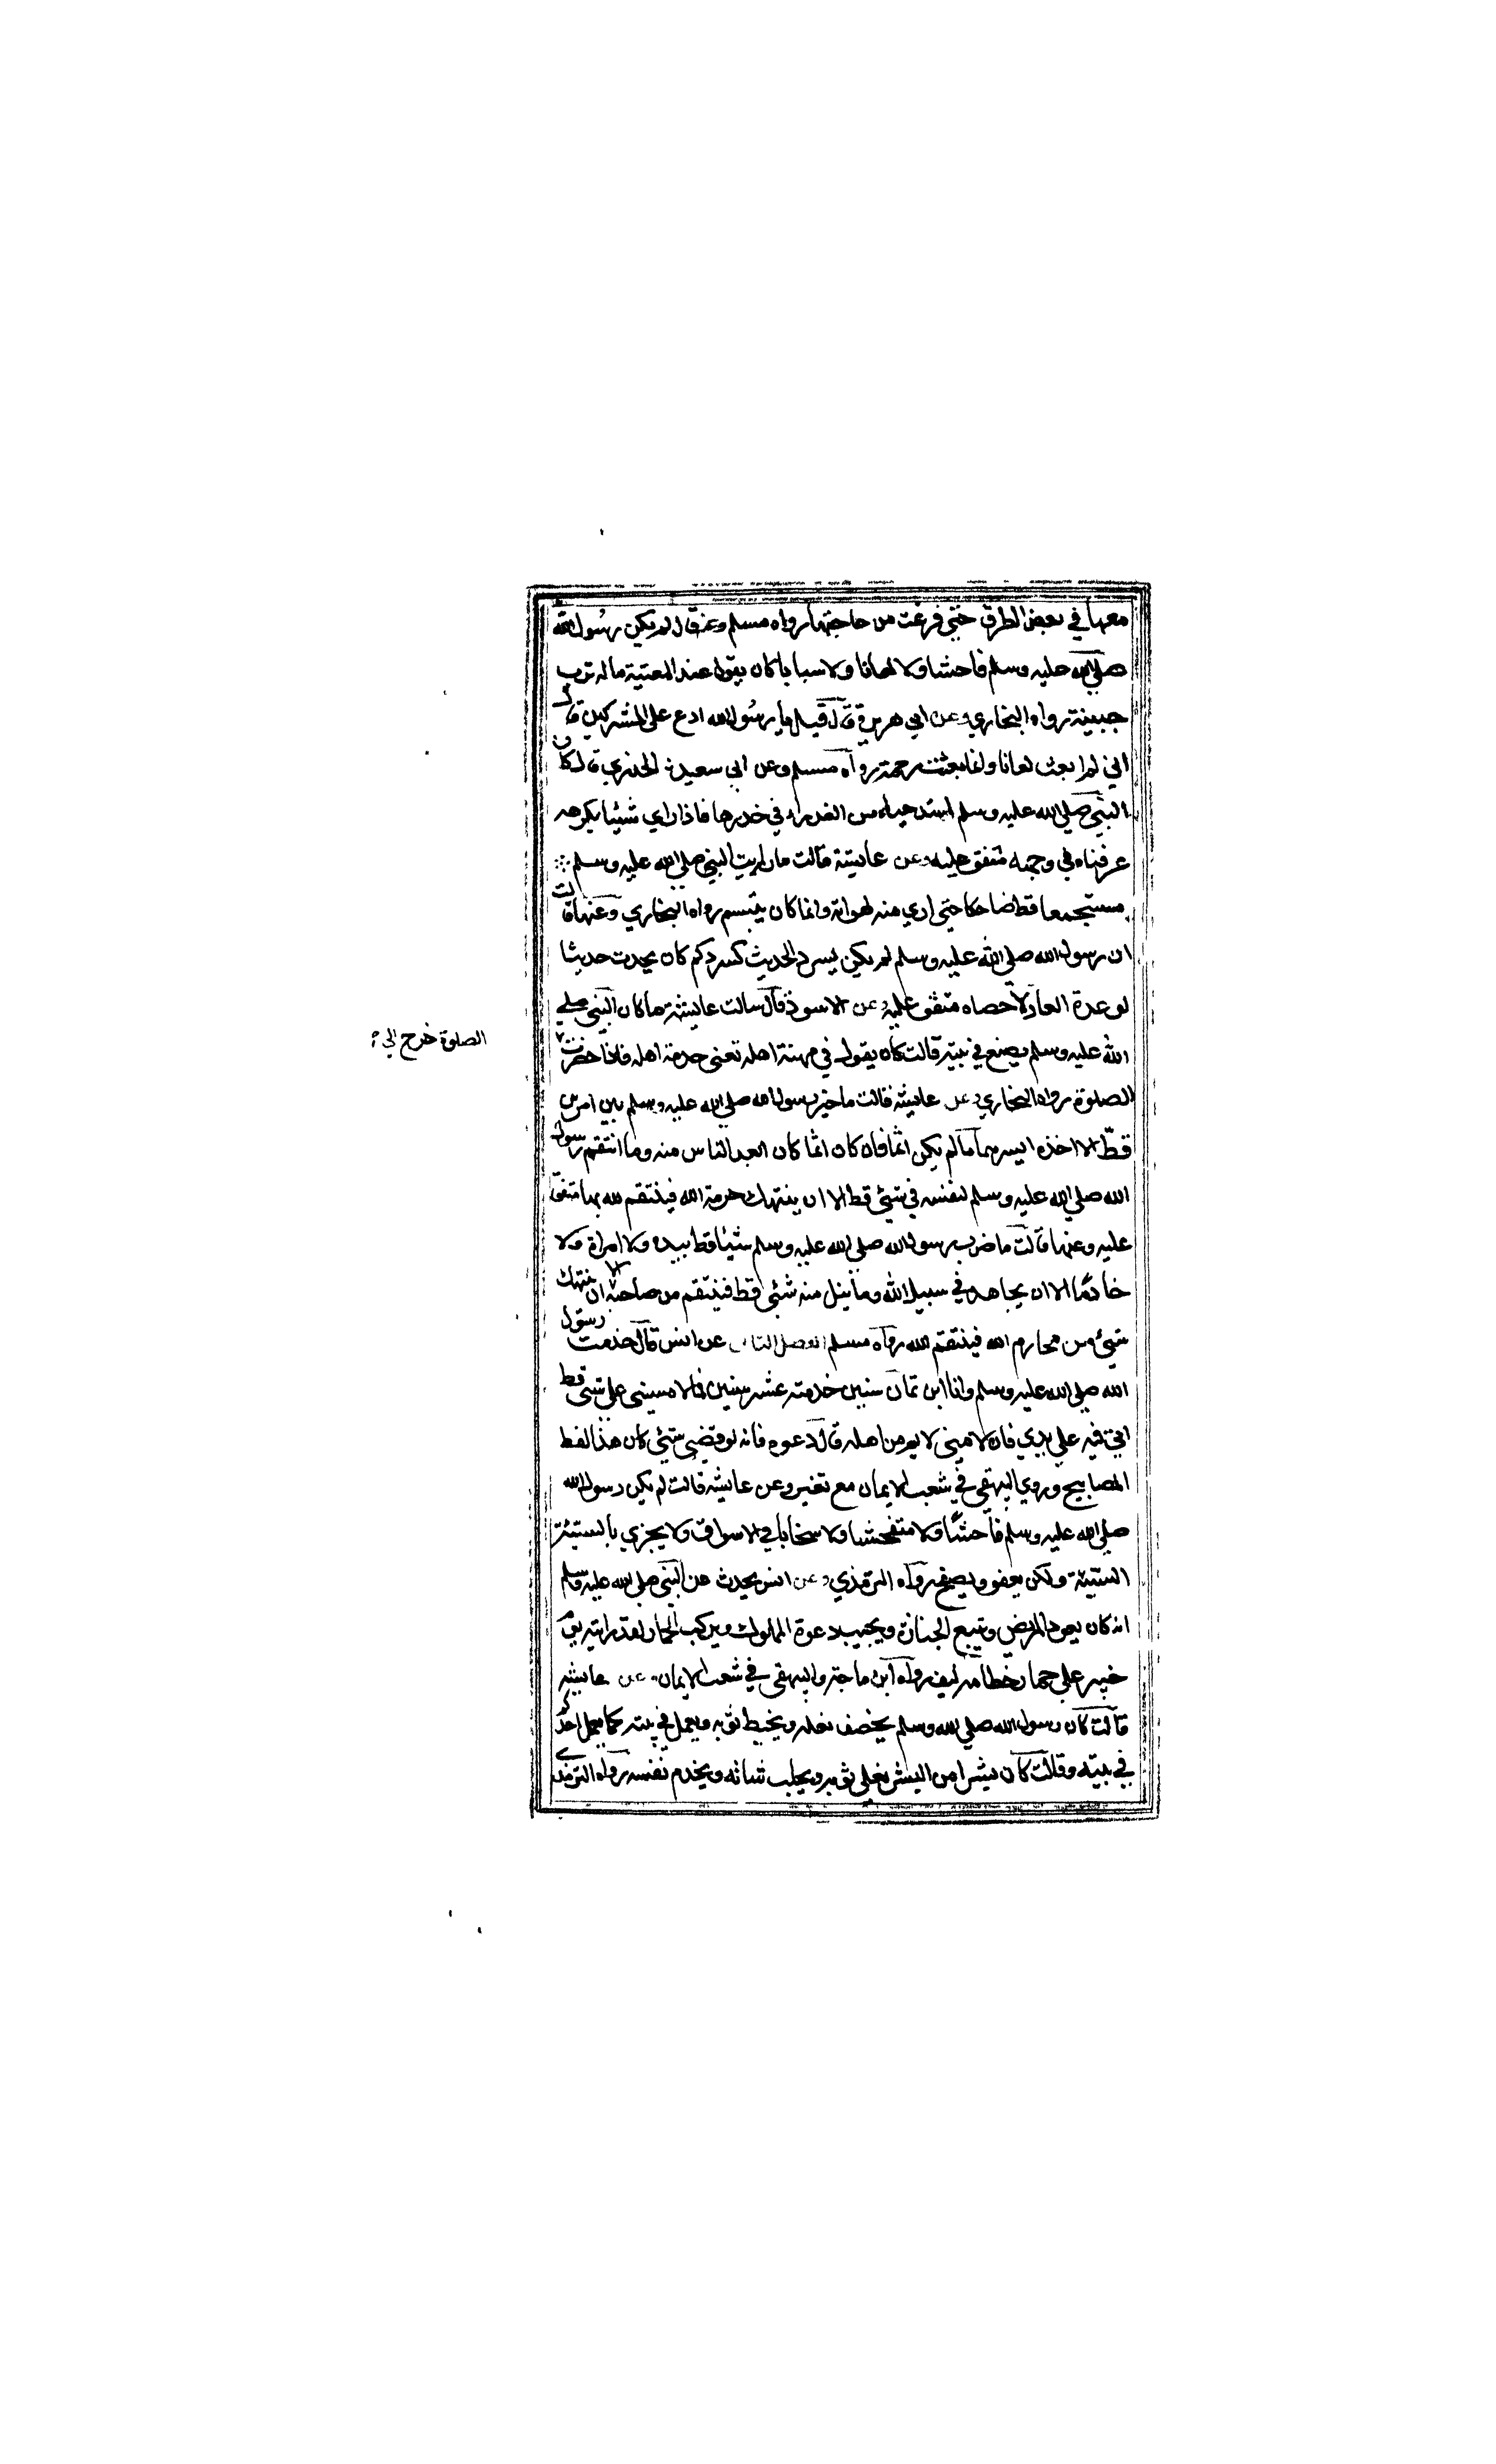 معها في بعض الطرق حتى فرغت من حاجتها رواه مسلم وعنه قال لم يكن رسول الله
صلي الله عليه وسلم فاحشا ولا لعانا ولا سبابا كان يقول عند المعتبة ماله ترب
جبينه رواه البخاري وعن ابي هريرة قال قيل يا رسول الله ادع على المشركين قال
اني لم ابعث لعانا وانما بعثت رحمة رواه مسلم وعن ابي سعيد الخدري قال كان
النبي صلي الله عليه وسلم اشد حياء من العذراء في خدرها فاذا راي شيئا يكرهه
عرفناه في وجهه متفق عليه وعن عايشة قالت ما رايت النبي صلي الله عليه وسلم
مستجمعا قط ضاحكا حتى اري منه لهواته وانما كان يتبسم رواه البخاري وعنها قالت
ان رسول الله صلي الله عليه وسلم لم يكن يسرد الحديث كسردكم كان يحدث حديثا
لو عده العاد لاحصاه متفق عليه وعن الاسود قال سالت عايشة ما كان النبي صلي
الله عليه وسلم يصنع في بيته قالت كان يقول في مهنة اهله تعنى خدمة اهله فاذا حضرت
الصلوة خرج الي
الصلوة رواه البخاري وعن عايشه قالت ما خير رسول الله صلي الله عليه وسلم بين امرين
قط الا اخذ ايسرهما ما لم يكن اثما فان كان اثما كان ابعد الناس منه وما انتقم رسول
الله صلي الله عليه وسلم لنفسه في شيئ قط الا ان ينتهك حرمة الله فينتقم لله بها متفق
عليه وعنها قالت ما ضرب رسول الله صلي الله عليه وسلم شيئا قط بيده ولا امراة ولا
خادما الا ان يجاهد في سبيل الله وما ينل منه شئى قط فينتقم من صاحبه الا ان ينتهك
شيئ من محارم الله فينتقم لله رواه مسلم الفصل الثاني عن انس قال خدمت رسول
الله صلي الله عليه وسلم وانا ابن ثمان سنين خدمته عشر سنين فما لامسينى على شئى قط
اتي فيه علي يدي فان لامنى لايم من اهله قال دعوه فانه لو قضي شيئي كان هذا لفظ
المصابيح وروي البيهقي في شعب الايمان مع تغير وعن عايشه قالت لم يكن رسول الله
صلي الله عليه وسلم فاحشا ولا متفحشا ولا سخابا في الاسواق ولا يجزي بالسيئة
السيئة ولكن يعفو ويصفح رواه الترمذي وعن انس يحدث عن النبي صلي الله عليه وسلم
انه كان يعود المريض ويتبع الجنازة ويجيب دعوة المملوك ويركب الحمار لقد رايته يوم
خيبر علي حمار خطامه ليف رواه ابن ماجة والبيهقي في شعب الايمان وعن عايشه
قالت كان رسول الله صلي لله وسلم يخصف نعله ويخيط ثوبه ويعمل في بيته كما يعمل احدكم
في بيته وقالت كان بشرا من البشر يفلي ثوبه ويحلب شاته ويخدم نفسه رواه الترمذي